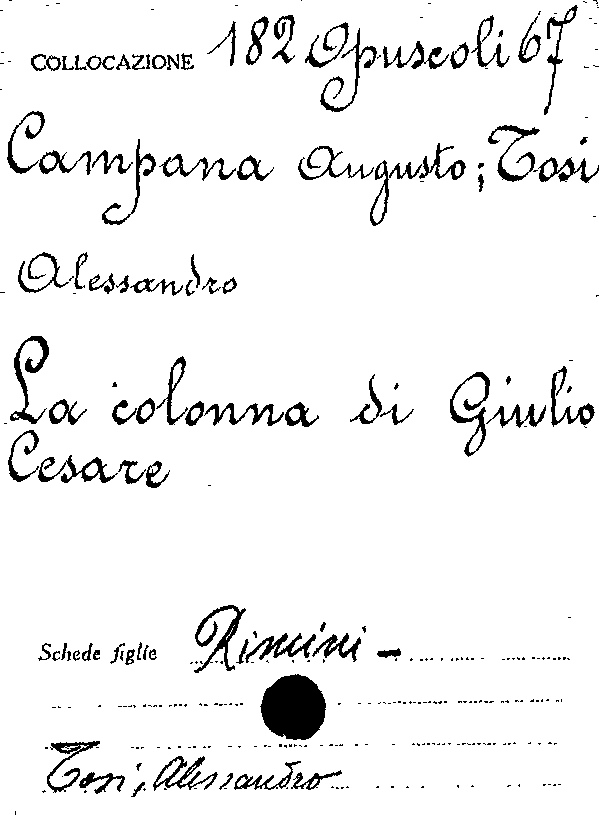 COLLOCAZIONE 182 Opuscoli 67
Campana Augusto; Tosi
Alessandro
La colonna di Giulio
Cesare
Schede figlie Rimini -
Tosi, Alessandro